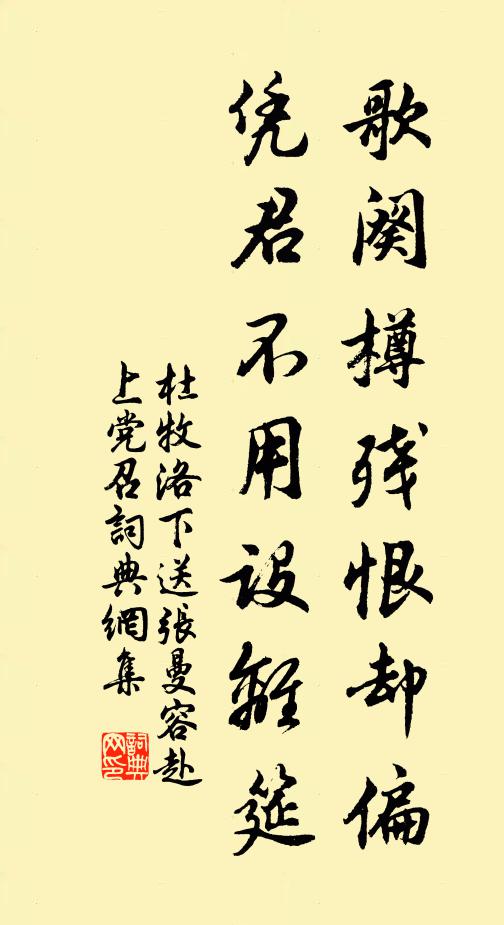 歌阕樽残恨却偏
凭君不用设離筵
杜牧洛下送張曼容赴
上党召詞典網集
詞典
网印